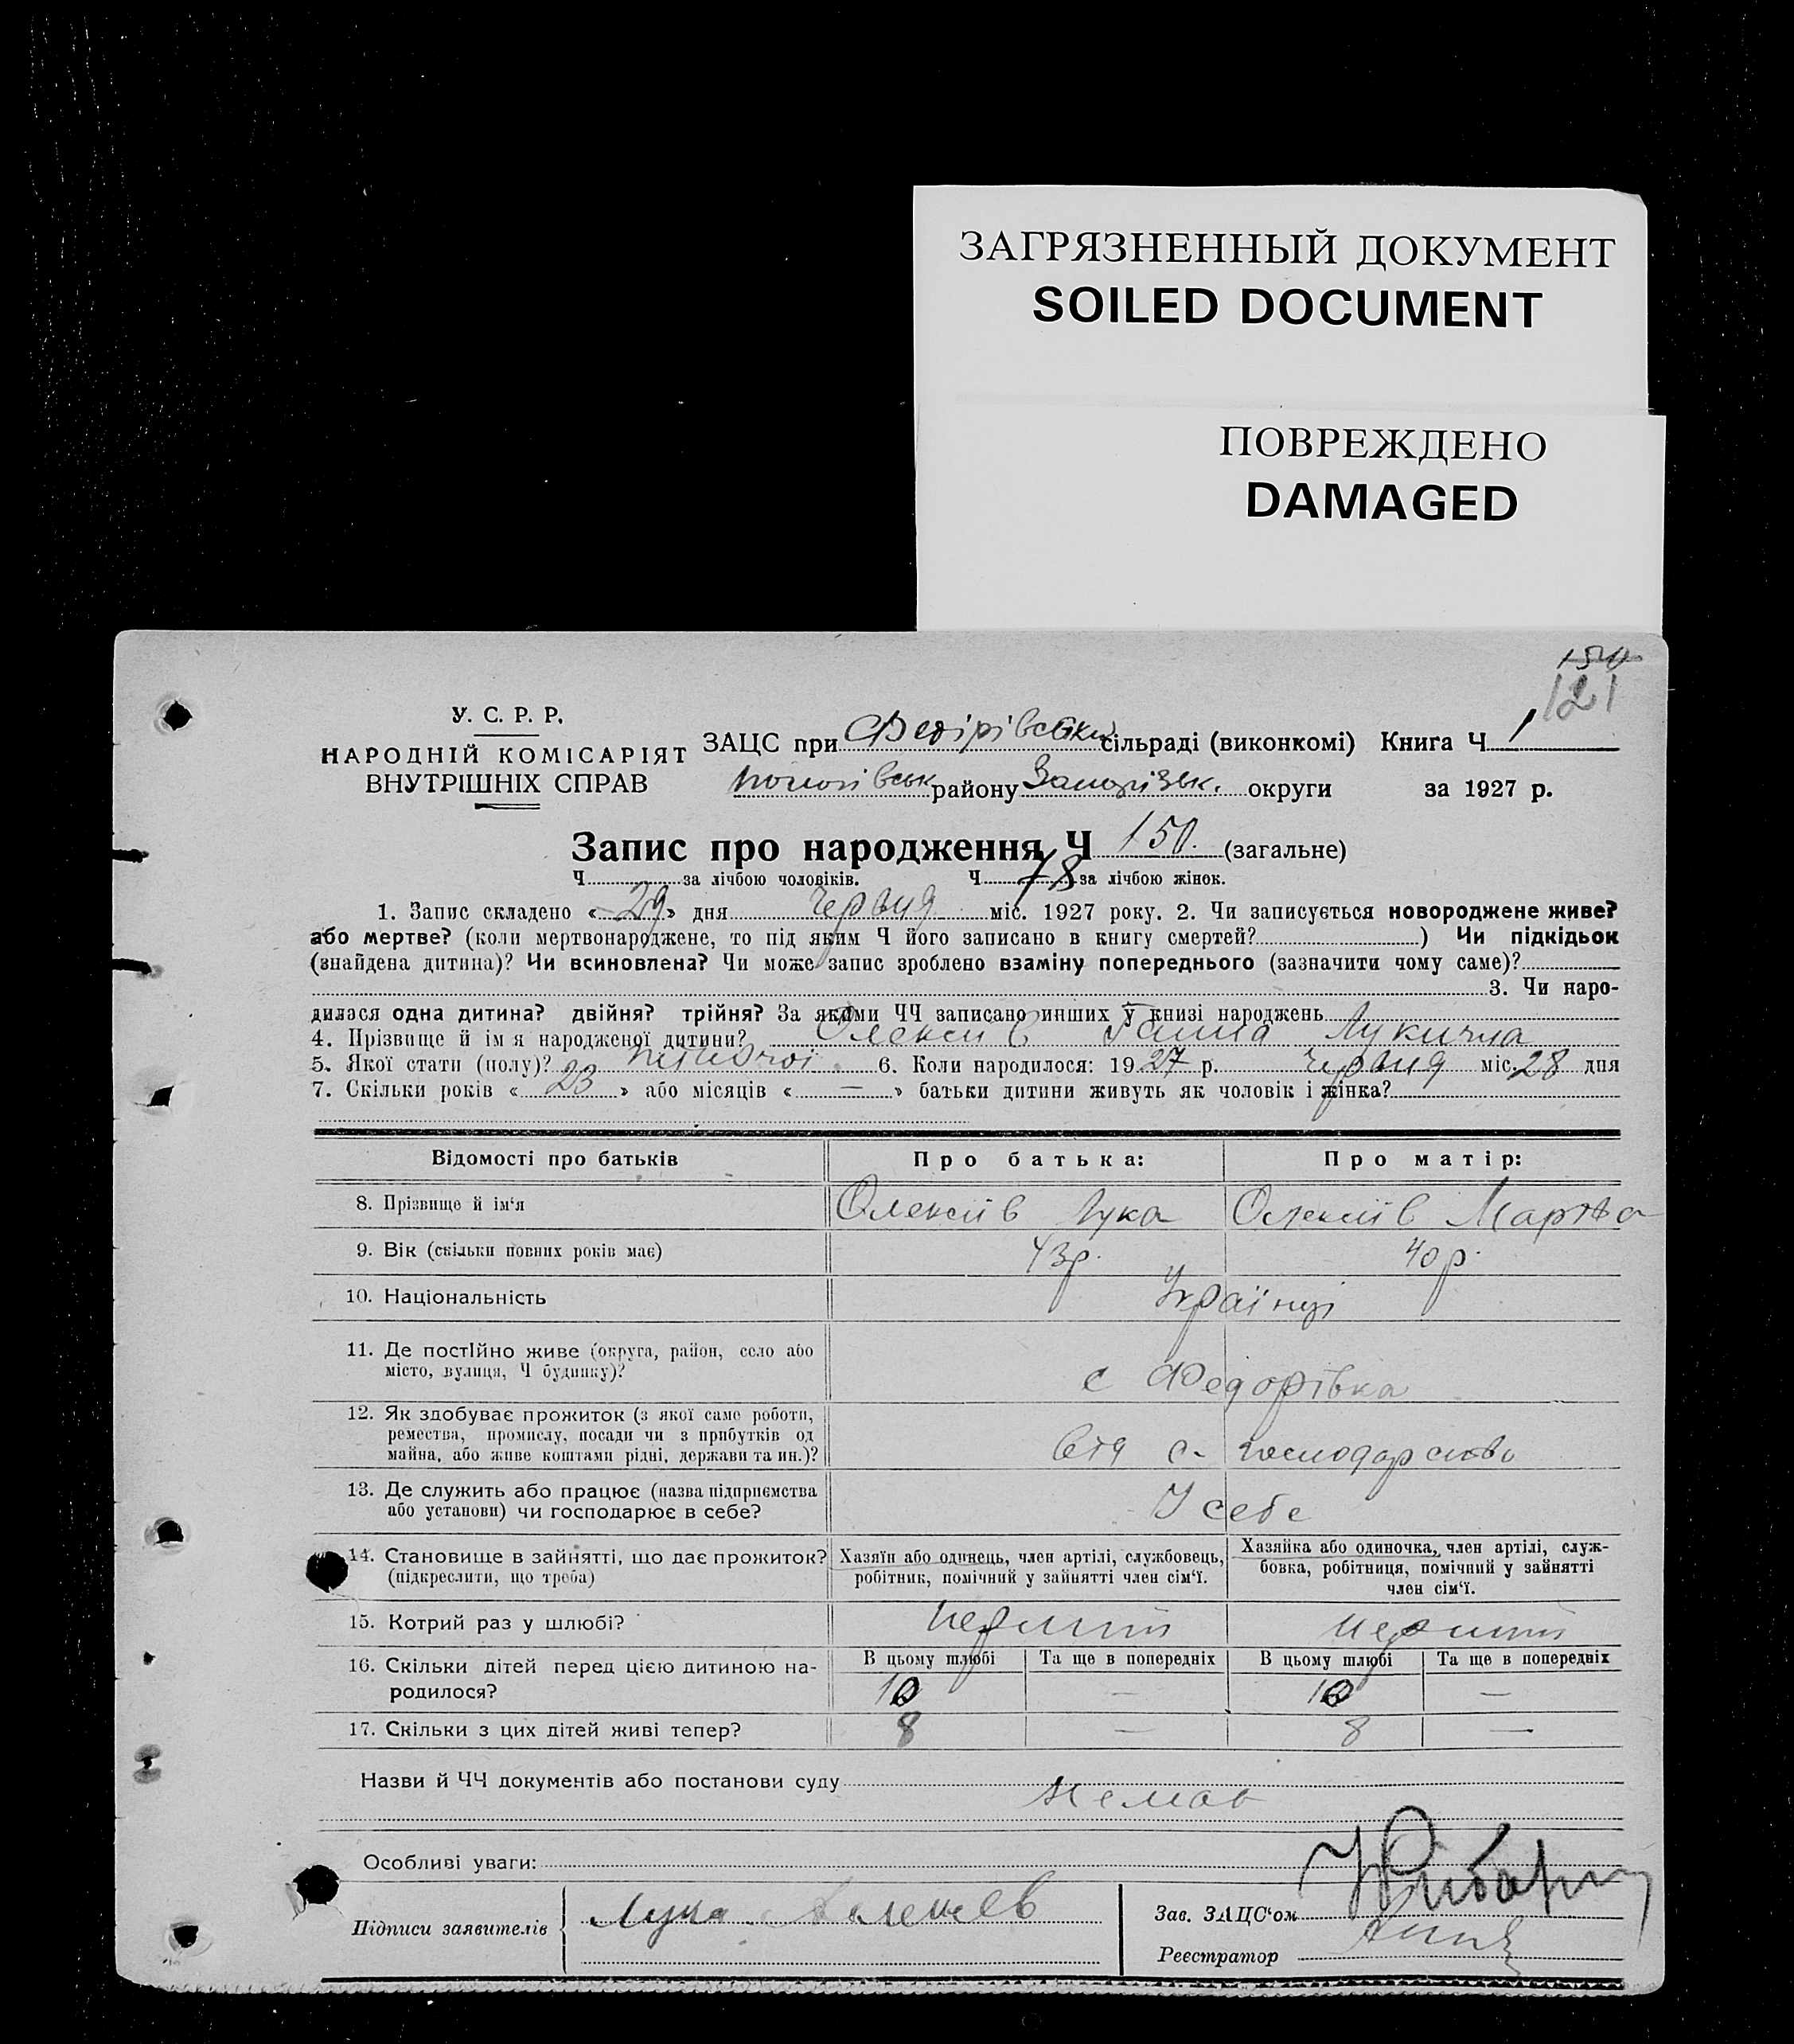 ЗАГРЯЗНЕННЫЙ ДОКУМЕНТ
SOILED DOCUMENT
ПОВРЕЖДЕНО
DAMAGED
150
121
У. С. Р. Р.
НАРОДНІЙ КОМІСАРІЯТ
ВНУТРІШНІХ СПРАВ
ЗАЦС при Федірівській сільраді (виконкомі) Книга Ч 1
Пологівськ району Запорізьк. округи за 1927 р.
Запис про народження Ч 150. (загальне)
Ч за лічбою чоловіків. Ч 78 за лічбою жінок.
1. Запис складено « 29 » дня червня міс. 1927 року. 2. Чи записується новороджене живе?
або мертве? (коли мертвонароджене, то під яким Ч його записано в книгу смертей? ) Чи підкідьок
(знайдена дитина)? Чи всиновлена? Чи може запис зроблено взаміну попереднього (зазначити чому саме)?
3. Чи наро-
дилася одна дитина? двійня? трійня? За якими ЧЧ записано инших у книзі народжень
4. Прізвище й ім я народженої дитини? Олексіїв Ганна Лукична
5. Якої стати (полу)? жіночої. 6. Коли народилося: 1927 р. червня міс. 28 дня
7. Скільки років « 23 » або місяців « — » батьки дитини живуть як чоловік і жінка?
Відомості про батьків Про батька: Про матір:
8. Прізвище й ім'я Олексіїв Лука Олексіїв Марфа
9. Вік (скільки повних років має) 43р. 40 р.
10. Національність Українці
11. Де постійно живе (округа, район, село або
місто, вулиця, Ч будинку)? с Федорівка
12. Як здобуває прожиток (з якої саме роботи,
ремества, промислу, посади чи з прибутків од
майна, або живе коштами рідні, держави та ин.)? від с. господарство
13. Де служить або працює (назва підприємства
або установи) чи господарює в себе? У себе
14. Становище в зайнятті, що дає прожиток?
(підкреслити, що треба)
Хазяїн або одинець, член артілі, службовець,
робітник, помічний у зайнятті член сім'ї.
Хазяйка або одиночка, член артілі, служ-
бовка, робітниця, помічний у зайнятті
член сім'ї.
15. Котрий раз у шлюбі? перший перший
16. Скільки дітей перед цією дитиною на-
родилося?
В цьому шлюбі Та ще в попередніх В цьому шлюбі Та ще в попередніх
10 — 10 —
17. Скільки з цих дітей живі тепер? 8 — 8 —
Назви й ЧЧ документів або постанови суду немає
Особливі уваги:
Підписи заявителів Лука Алексеев
Зав. ЗАЦС'ом
Реєстратор